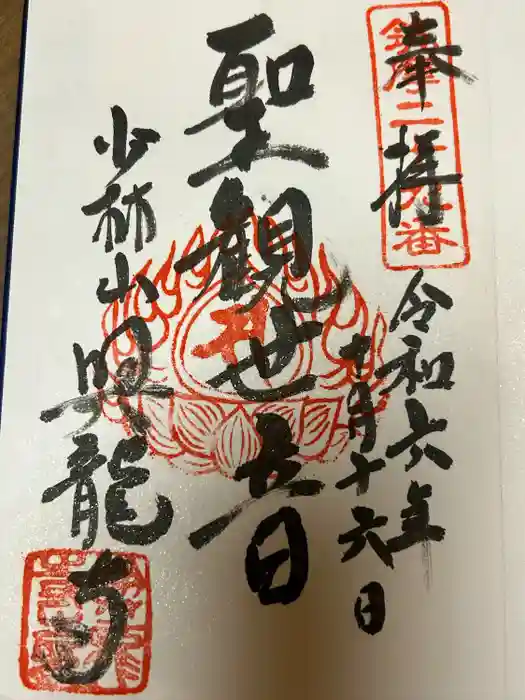 奉拝
令和六年
十月十六日
聖観世音
少林山
興龍寺